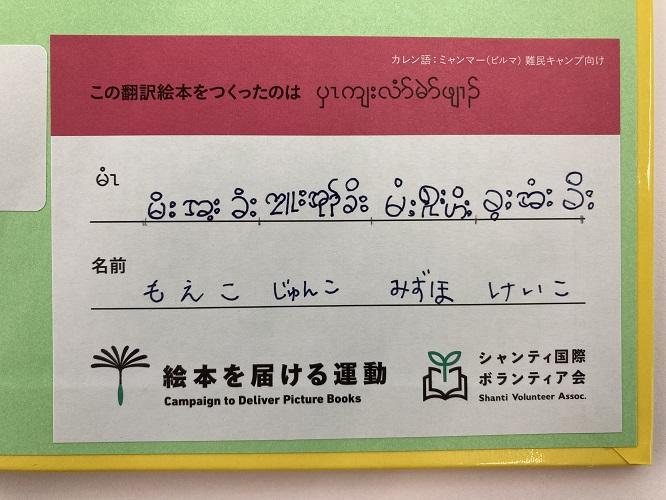 カレン語：ミャンマー（ビルマ）難民キャンプ向け
この翻訳絵本をつくったのは ပှၤကျးလံာ်မဲာ်ဖျၢၣ်
မံၤ
名前
もえこ じゅんこ みずほ けいこ
絵本を届ける運動
Campaign to Deliver Picture Books
シャンティ国際
ボランティア会
Shanti Volunteer Assoc.